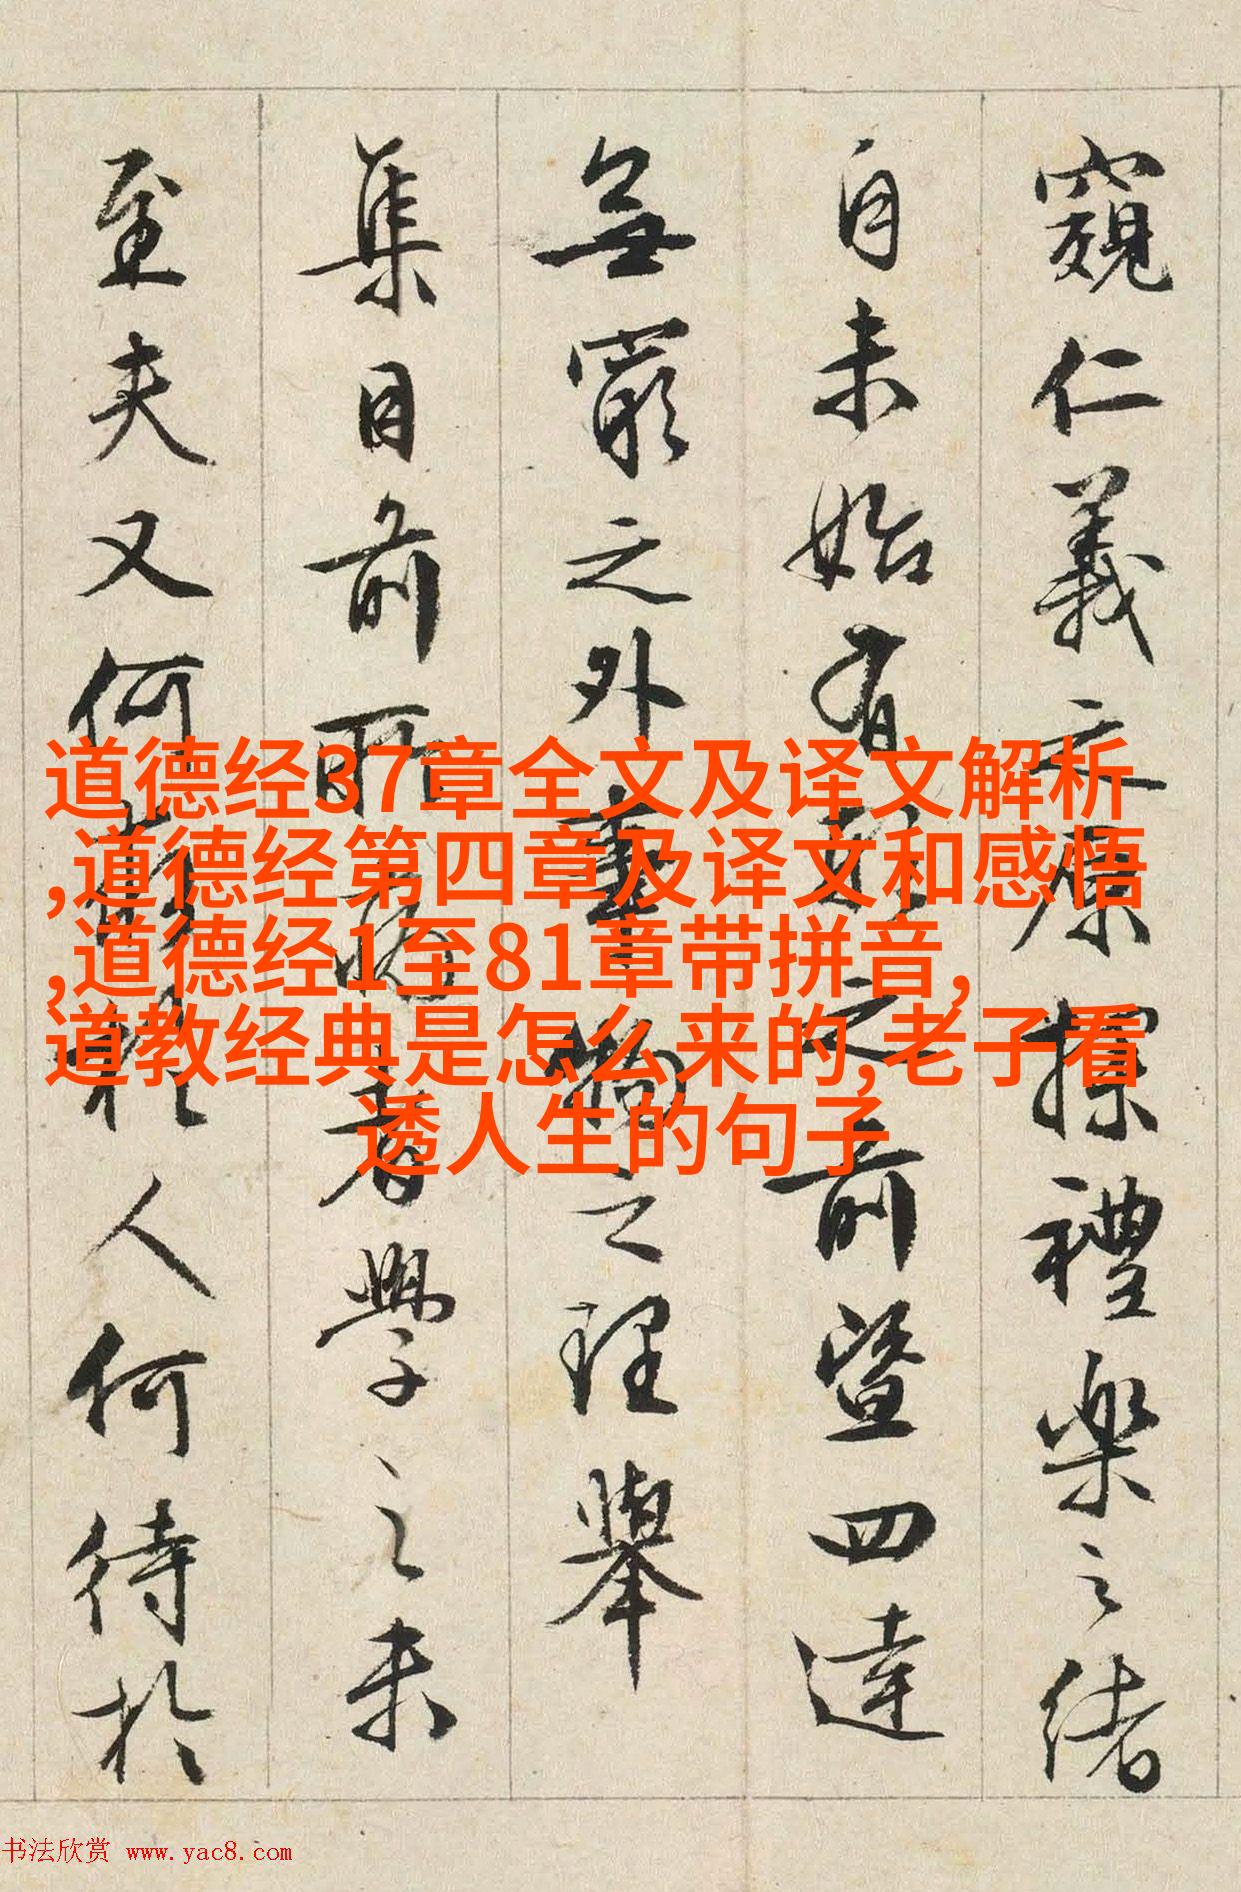 窺仁義之原探禮樂之緒
自未始有形之前暨四達
無窮之外事物之理舉
集目前所病者學之未
至夫又何人何待於
道德经37章全文及译文解析
,道德经第四章及译文和感悟
,道德经1至81章带拼音,
道教经典是怎么来的,老子看
透人生的句子
书法欣赏 www.yac8.com